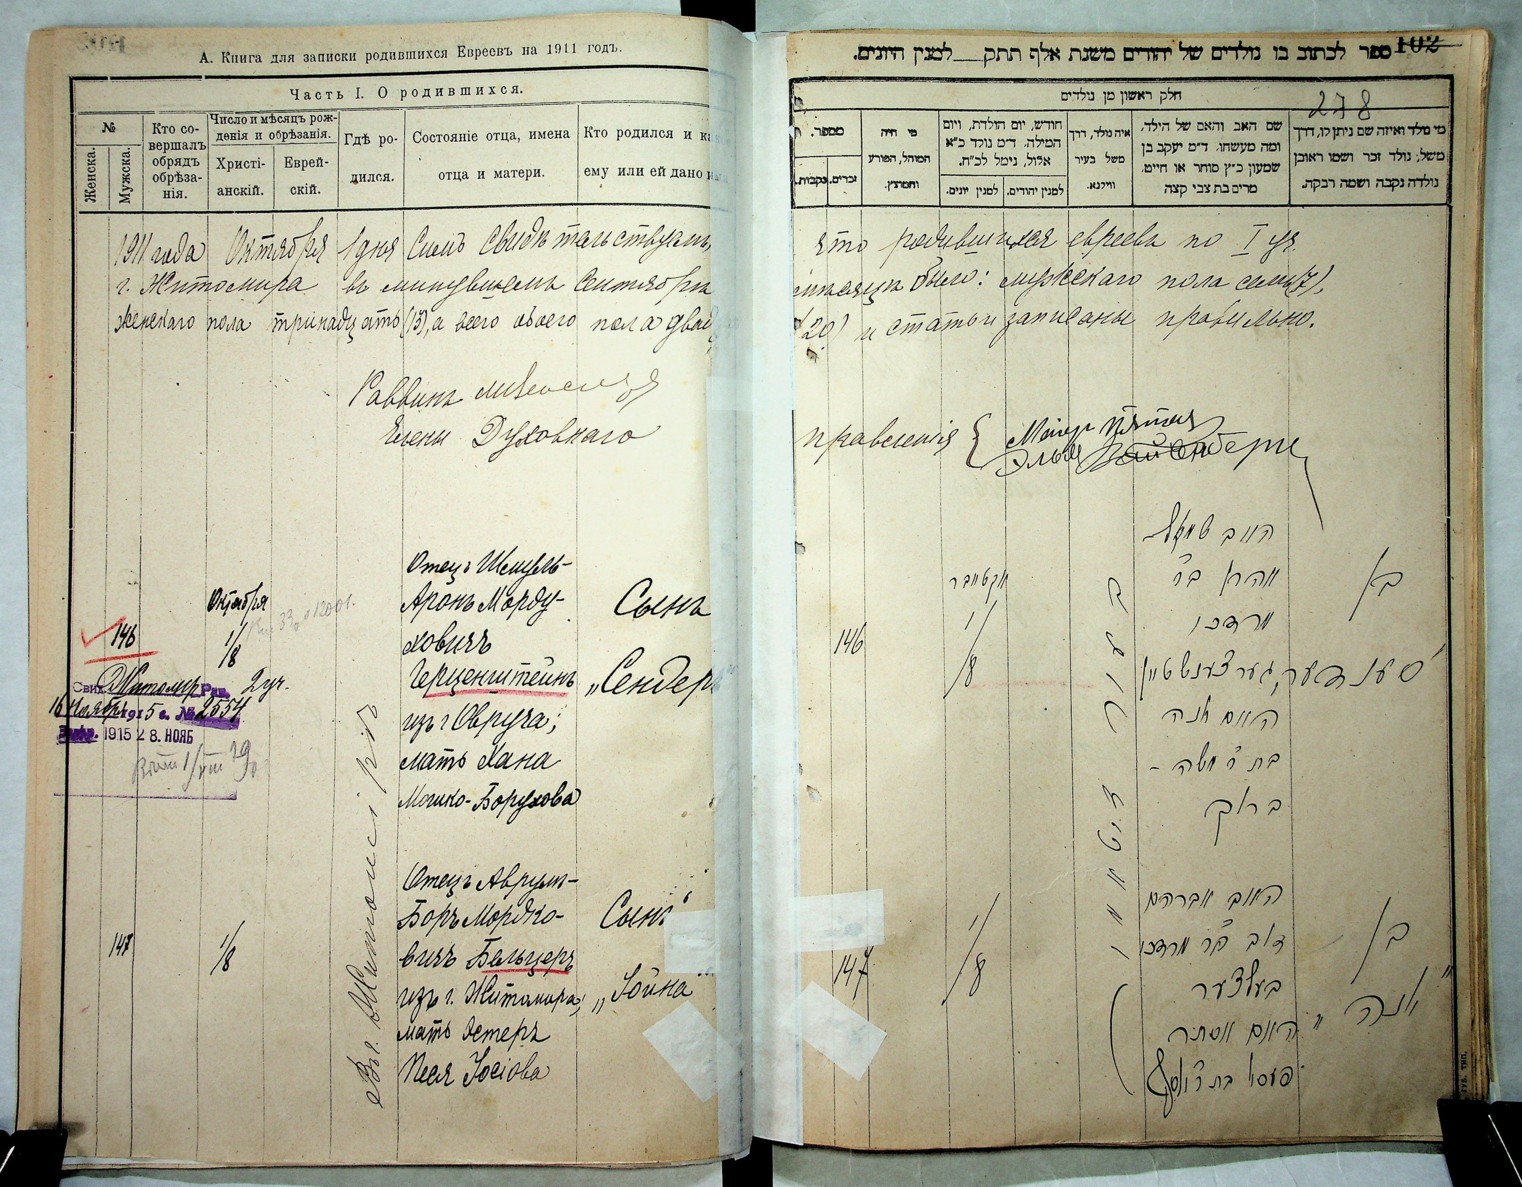 А. Книга для записки родившихся Евреевъ на 1911 годъ.
Часть I. О родившихся.
№
Женска.
Мужска.
Кто совершалъ обрядъ обрѣзанія.
Число и мѣсяцъ рожденія и обрѣзанія.
Христіанскій.
Еврейскій.
Гдѣ родился.
Состояніе отца, имена отца и матери.
Кто родился и ка
ему или ей дано и
1911 года Октября 1 дня Симъ Свидѣтельствуемъ,
г. Житомира въ минувшемъ Сентябрѣ
женскаго пола тринадцать (13), а всего обоего пола двад
Раввинъ
Члены Духовнаго
Октября
146
1/8
Отецъ Шмуль-
Аронъ Морду-
ховичъ
Герценштейнъ
изъ г. Овруча;
мать Хана
Мошко-Борухова
Сынъ
„Сендеръ
Свид. Житомир. Рав. 2 уч.
16 Ноября 1915 г. № 2554
1915 28. НОЯБ
Въ г. Житомірѣ
147
1/8
Отецъ Аврумъ-
Беръ Мордко-
вичъ Бельцеръ
изъ г. Житомира;
мать Эстеръ
Песя Іосіова
Сынъ
„Іойна"
102
ספר לכתוב בו נולדים של יהודים משנת אלף תתק__למנין היונים.
278
חלק ראשון מן נולדים
מי נולד ואיזה שם ניתן לו, דרך
משל: נולד זכר ושמו ראובן
נולדה נקבה ושמה רבקה.
שם האב והאם של הילד,
ומה מעשהו. ד״מ יעקב בן
שמעון כ״ץ סוחר או חייט.
מרים בת צבי קצה
איה נולד, דרך
משל בעיר
ווילנא.
חודש, יום הולדת, ויום
המילה. ד״מ נולד כ״א
אלול, נימל לכ״ח.
למנין יהודים.
למנין יונים.
מי היה
המוהל, הפורע
והמוצץ.
מספר.
זכרים.
נקבות.
что родившихся евреевъ по I уч.
мѣсяцѣ было: мужскаго пола семь (7),
(20) и статьи записаны правильно.
правленія {
Элья
146
אקטאבר
1/8
אהרן ב״ר
מרדכי
סענדער
גערצענשטיין
האם חנה
ברוך
בן
147
1/8
האב אברהם
דוב ב״ר מרדכי
בעלצער
האם אסתר
פעסא בת ר׳ יוסף
בן
„יונה"